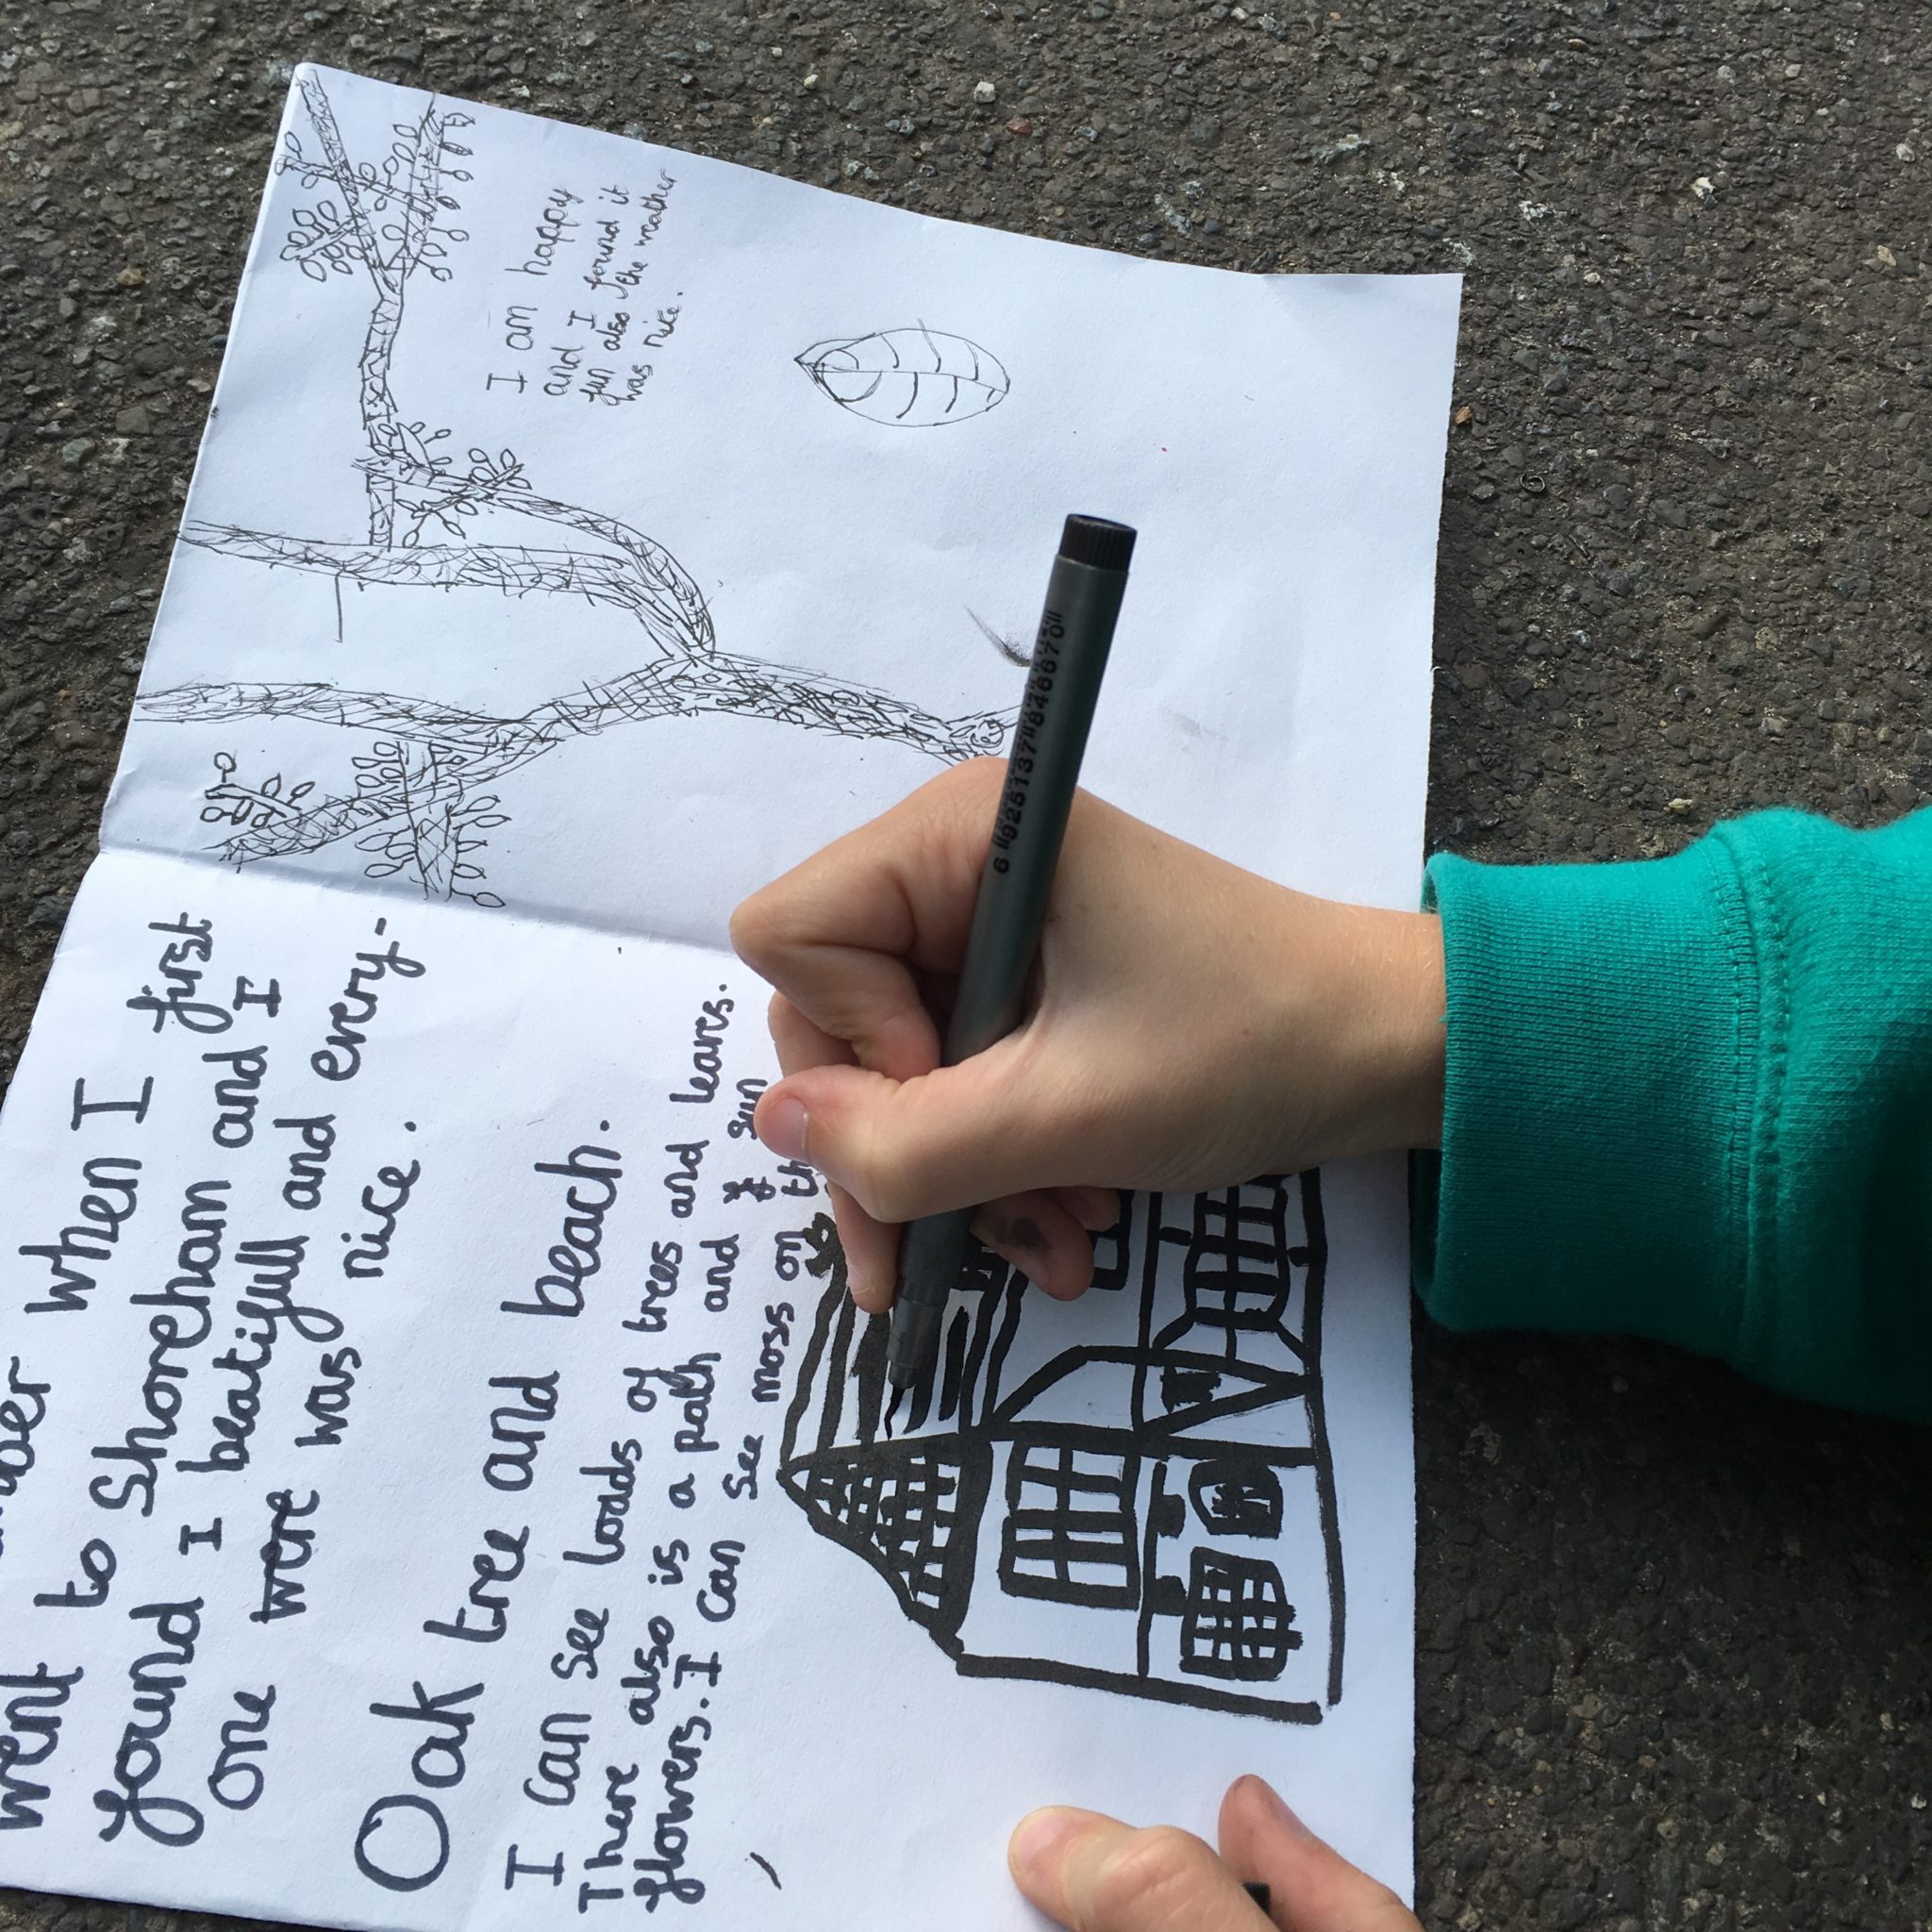 when I first
went to Shoreham and I
found I beatifull and every-
one were was nice.
Oak tree and beach.
I can see loads of trees and leaves.
There also is a path and sun
flowers. I can see moss on
I am happy
and I found it
fun also the weather
was nice.
6 925137 846670